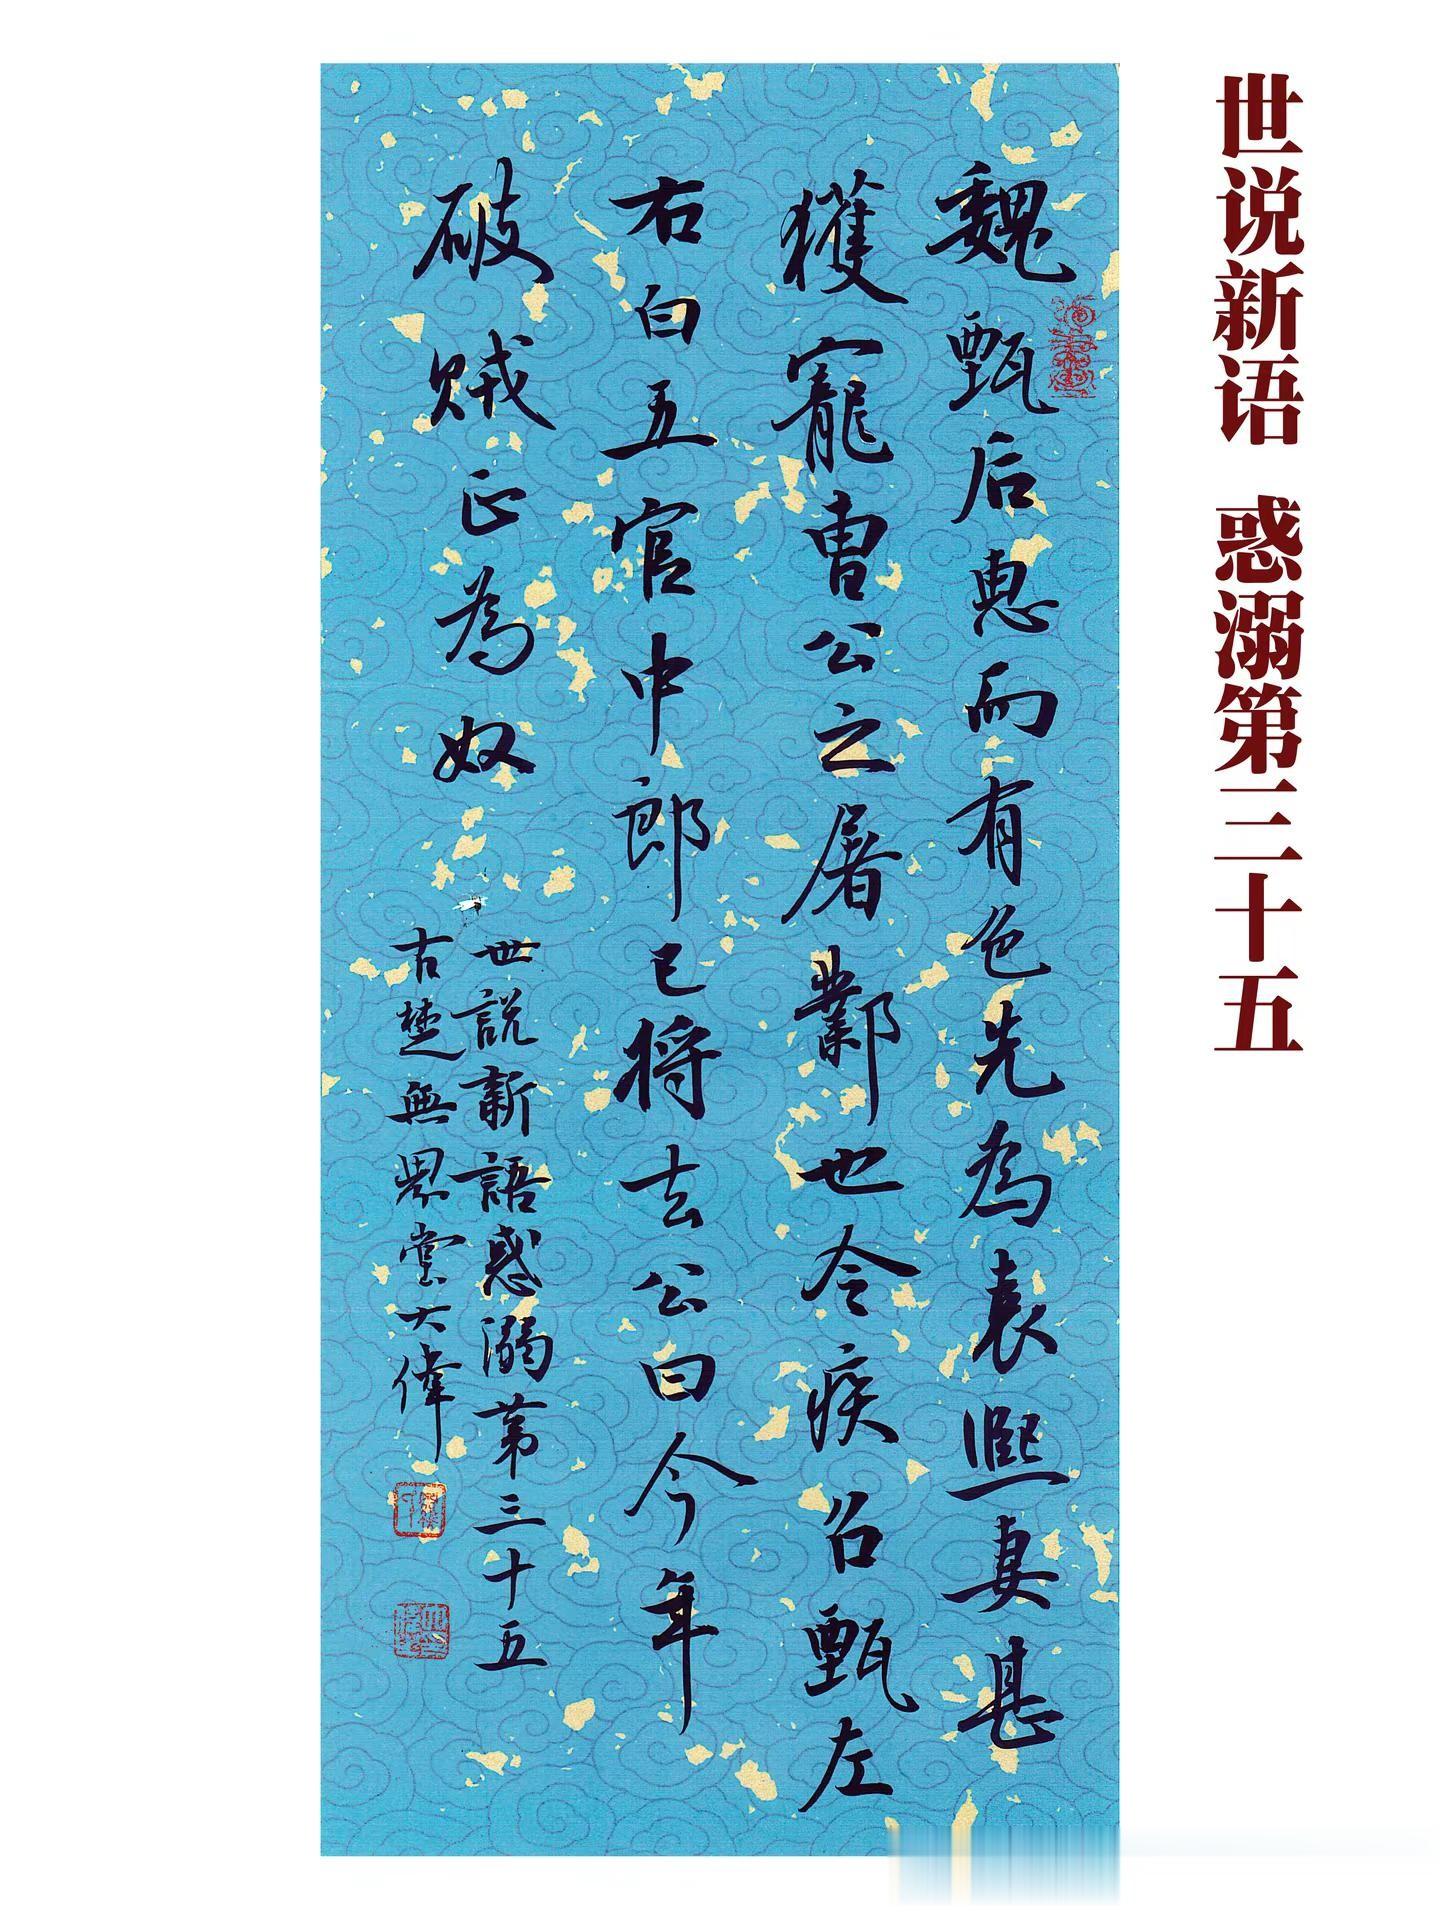 世说新语 惑溺第三十五
魏甄后惠而有色先為袁熙妻甚
獲寵曹公之屠鄴也令疾召甄左
右白五官中郎已将去公曰今年
破賊正為奴
世説新語惑溺第三十五
古楚無堂大偉